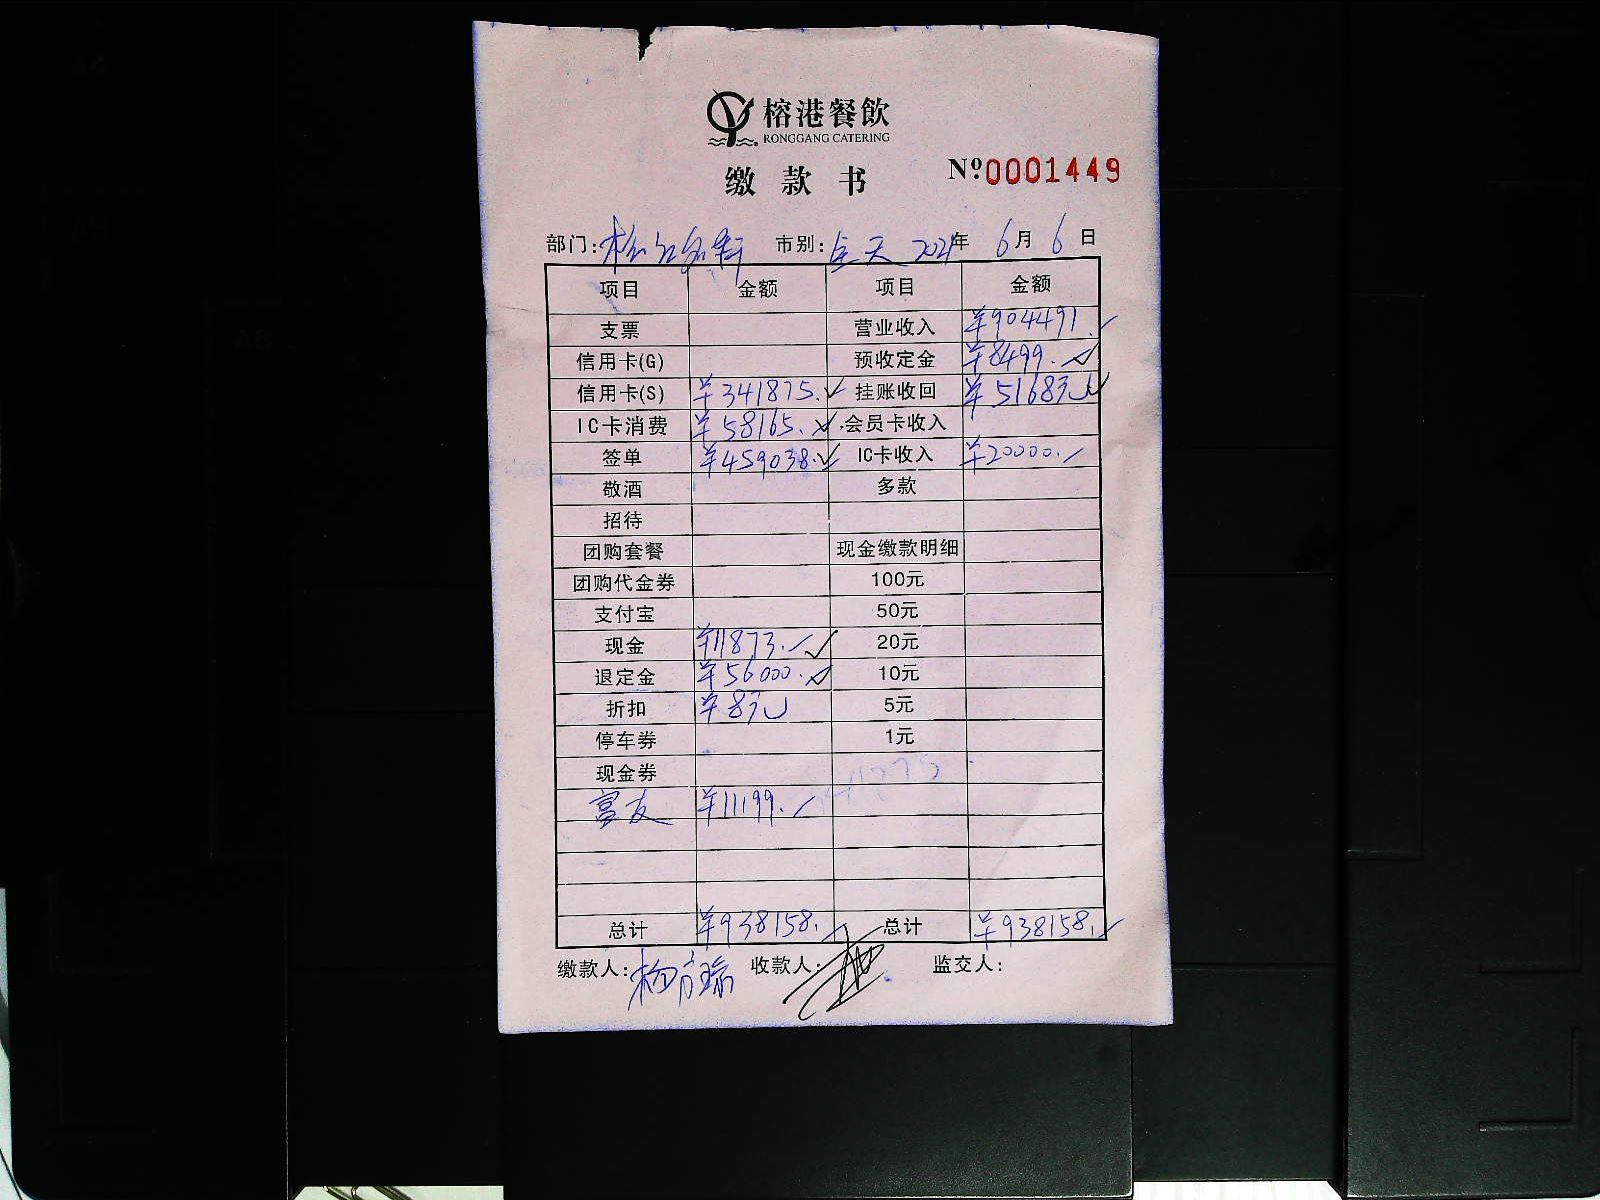 榕港餐飲
RONGGANG CATERING
缴款书 Nº0001449
部门: 市别:全天 2021年6月6日
项目 金额 项目 金额
支票 营业收入 ¥904491.
信用卡(G) 预收定金 ¥8499.
信用卡(S) ¥341875. 挂账收回 ¥5168元
IC卡消费 ¥58165. 会员卡收入
签单 ¥459038. IC卡收入 ¥20000.
敬酒 多款
招待
团购套餐 现金缴款明细
团购代金券 100元
支付宝 50元
现金 ¥11873. 20元
退定金 ¥56000. 10元
折扣 ¥8元 5元
停车券 1元
现金券
富友 ¥11199.
总计 ¥938158. 总计 ¥938158.
缴款人: 收款人: 监交人: